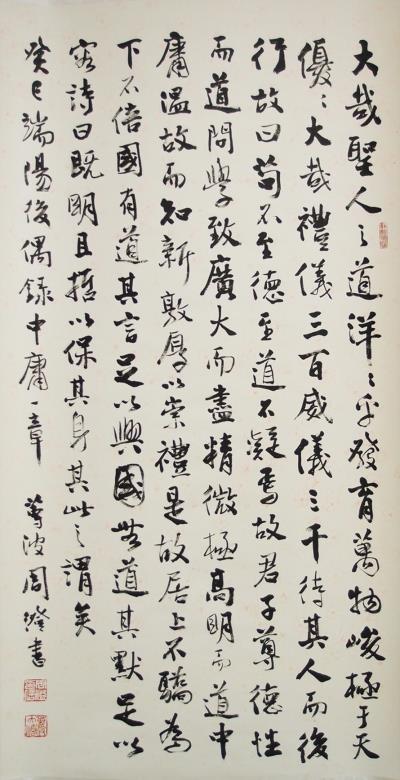 大哉聖人之道洋〻乎發育萬物峻極于天
優〻大哉禮儀三百威儀三千待其人而後
行故曰苟不至德至道不凝焉故君子尊德性
而道問學致廣大而盡精微極高明而道中
庸溫故而知新敦厚以崇禮是故居上不驕為
下不倍國有道其言足以興國無道其默足以
容詩曰既明且哲以保其身其此之謂矣
癸巳端陽後偶錄中庸一章 蓴波周澄書